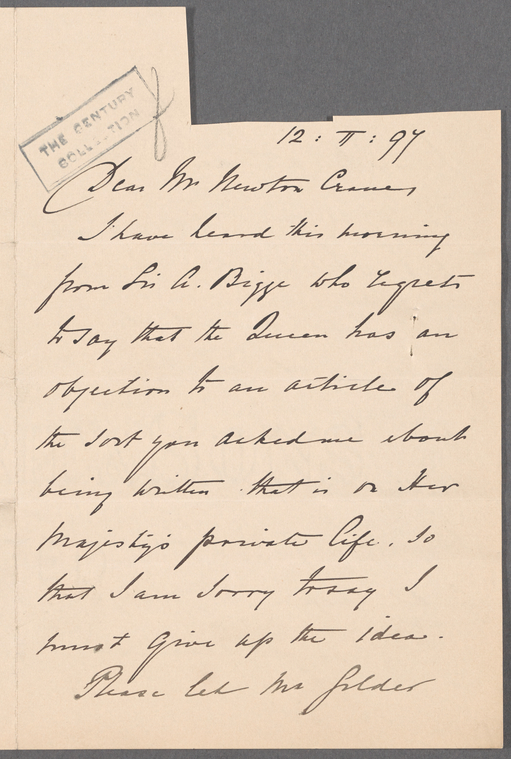 THE CENTURY
COLLECTION
12 : II : 97
Dear Mr Newton Crane,
I have heard this morning
from Sir A. Bigge who regrets
to say that the Queen has an
objection to an article of
the sort you asked me about
being written - that is on Her
Majesty's private life. So
that I am sorry to say I
must give up the idea.
Please let Mr Gilder